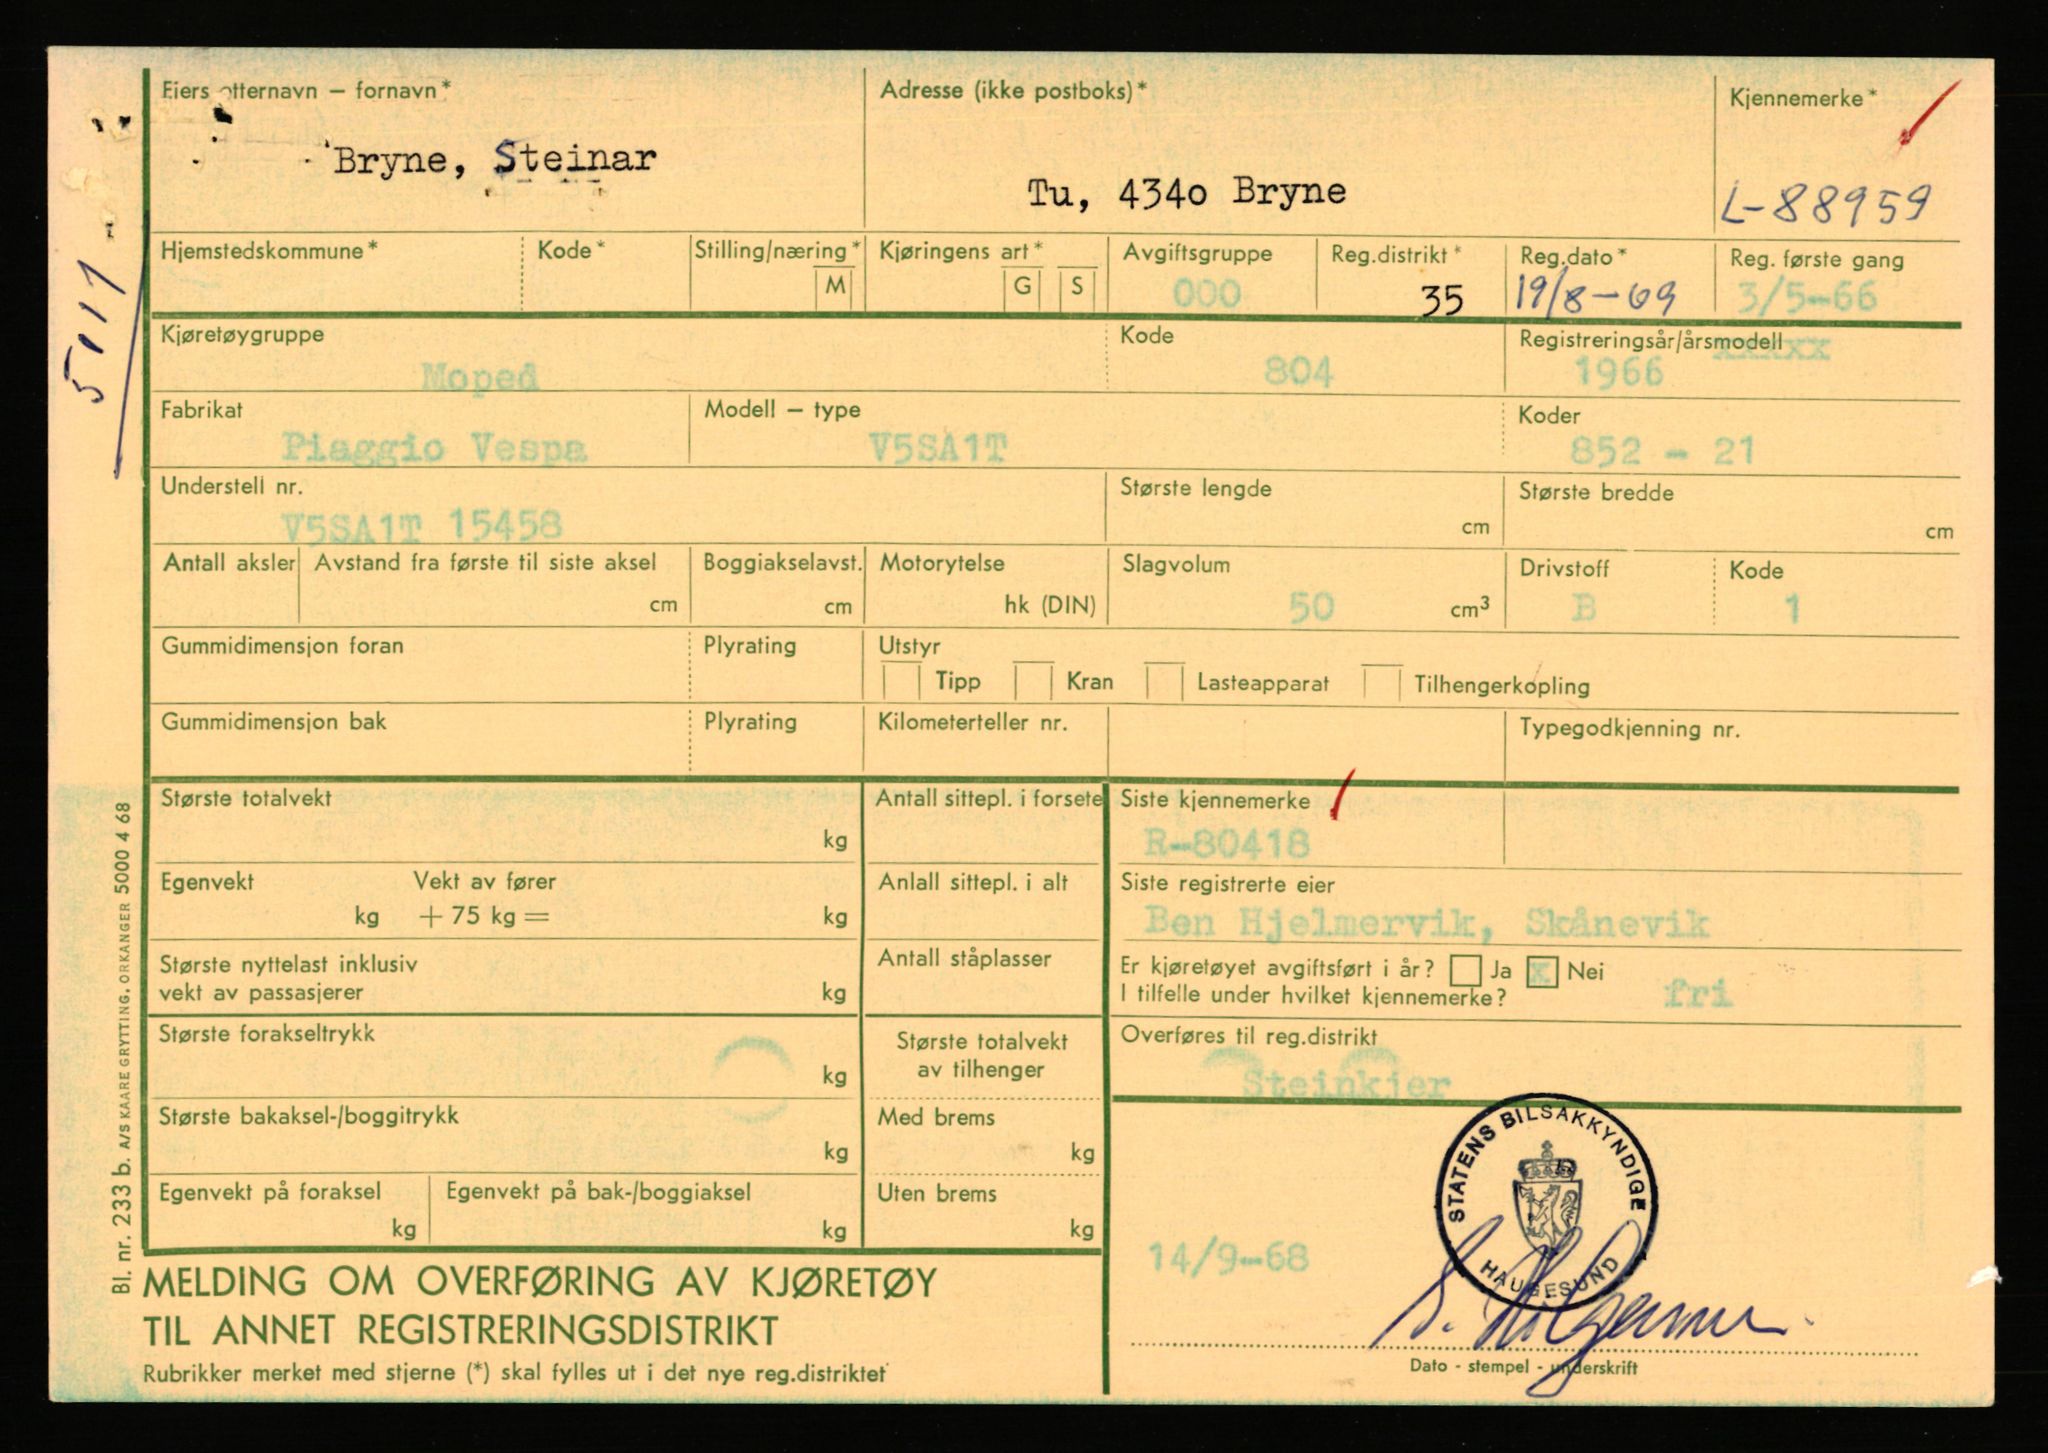 Eiers etternavn – fornavn*
Bryne, Steinar
Adresse (ikke postboks)*
Tu, 4340 Bryne
Kjennemerke*
L-88959
5011
Hjemstedskommune*
Kode*
Stilling/næring*
M
Kjøringens art*
G S
Avgiftsgruppe
000
Reg.distrikt*
35
Reg.dato*
19/8-69
Reg. første gang
3/5-66
Kjøretøygruppe
Moped
Kode
804
Registreringsår/årsmodell
xxxxx
1966
Fabrikat
Piaggio Vespa
Modell – type
V5SA1T
Koder
852 - 21
Understell nr.
V5SA1T 15458
Største lengde
cm
Største bredde
cm
Antall aksler
Avstand fra første til siste aksel
cm
Boggiakselavst.
cm
Motorytelse
hk (DIN)
Slagvolum
50 cm³
Drivstoff
B
Kode
1
Gummidimensjon foran
Plyrating
Utstyr
Tipp Kran Lasteapparat Tilhengerkopling
Gummidimensjon bak
Plyrating
Kilometerteller nr.
Typegodkjenning nr.
Største totalvekt
kg
Antall sittepl. i forsete
Siste kjennemerke
R-80418
Egenvekt
kg
Vekt av fører
+ 75 kg =
kg
Anlall sittepl. i alt
Siste registrerte eier
Ben Hjelmervik, Skånevik
Største nyttelast inklusiv
vekt av passasjerer
kg
Antall ståplasser
Er kjøretøyet avgiftsført i år? Ja x Nei
I tilfelle under hvilket kjennemerke?
fri
Største forakseltrykk
kg
Største totalvekt
av tilhenger
Overføres til reg.distrikt
Steinkjer
Største bakaksel-/boggitrykk
kg
Med brems
kg
Egenvekt på foraksel
kg
Egenvekt på bak-/boggiaksel
kg
Uten brems
kg
14/9-68
STATENS BILSAKKYNDIGE
HAUGESUND
Dato - stempel - underskrift
MELDING OM OVERFØRING AV KJØRETØY
TIL ANNET REGISTRERINGSDISTRIKT
Rubrikker merket med stjerne (*) skal fylles ut i det nye reg.distriktet
Bl. nr. 233 b. A/S KAARE GRYTTING, ORKANGER 5000 4 68